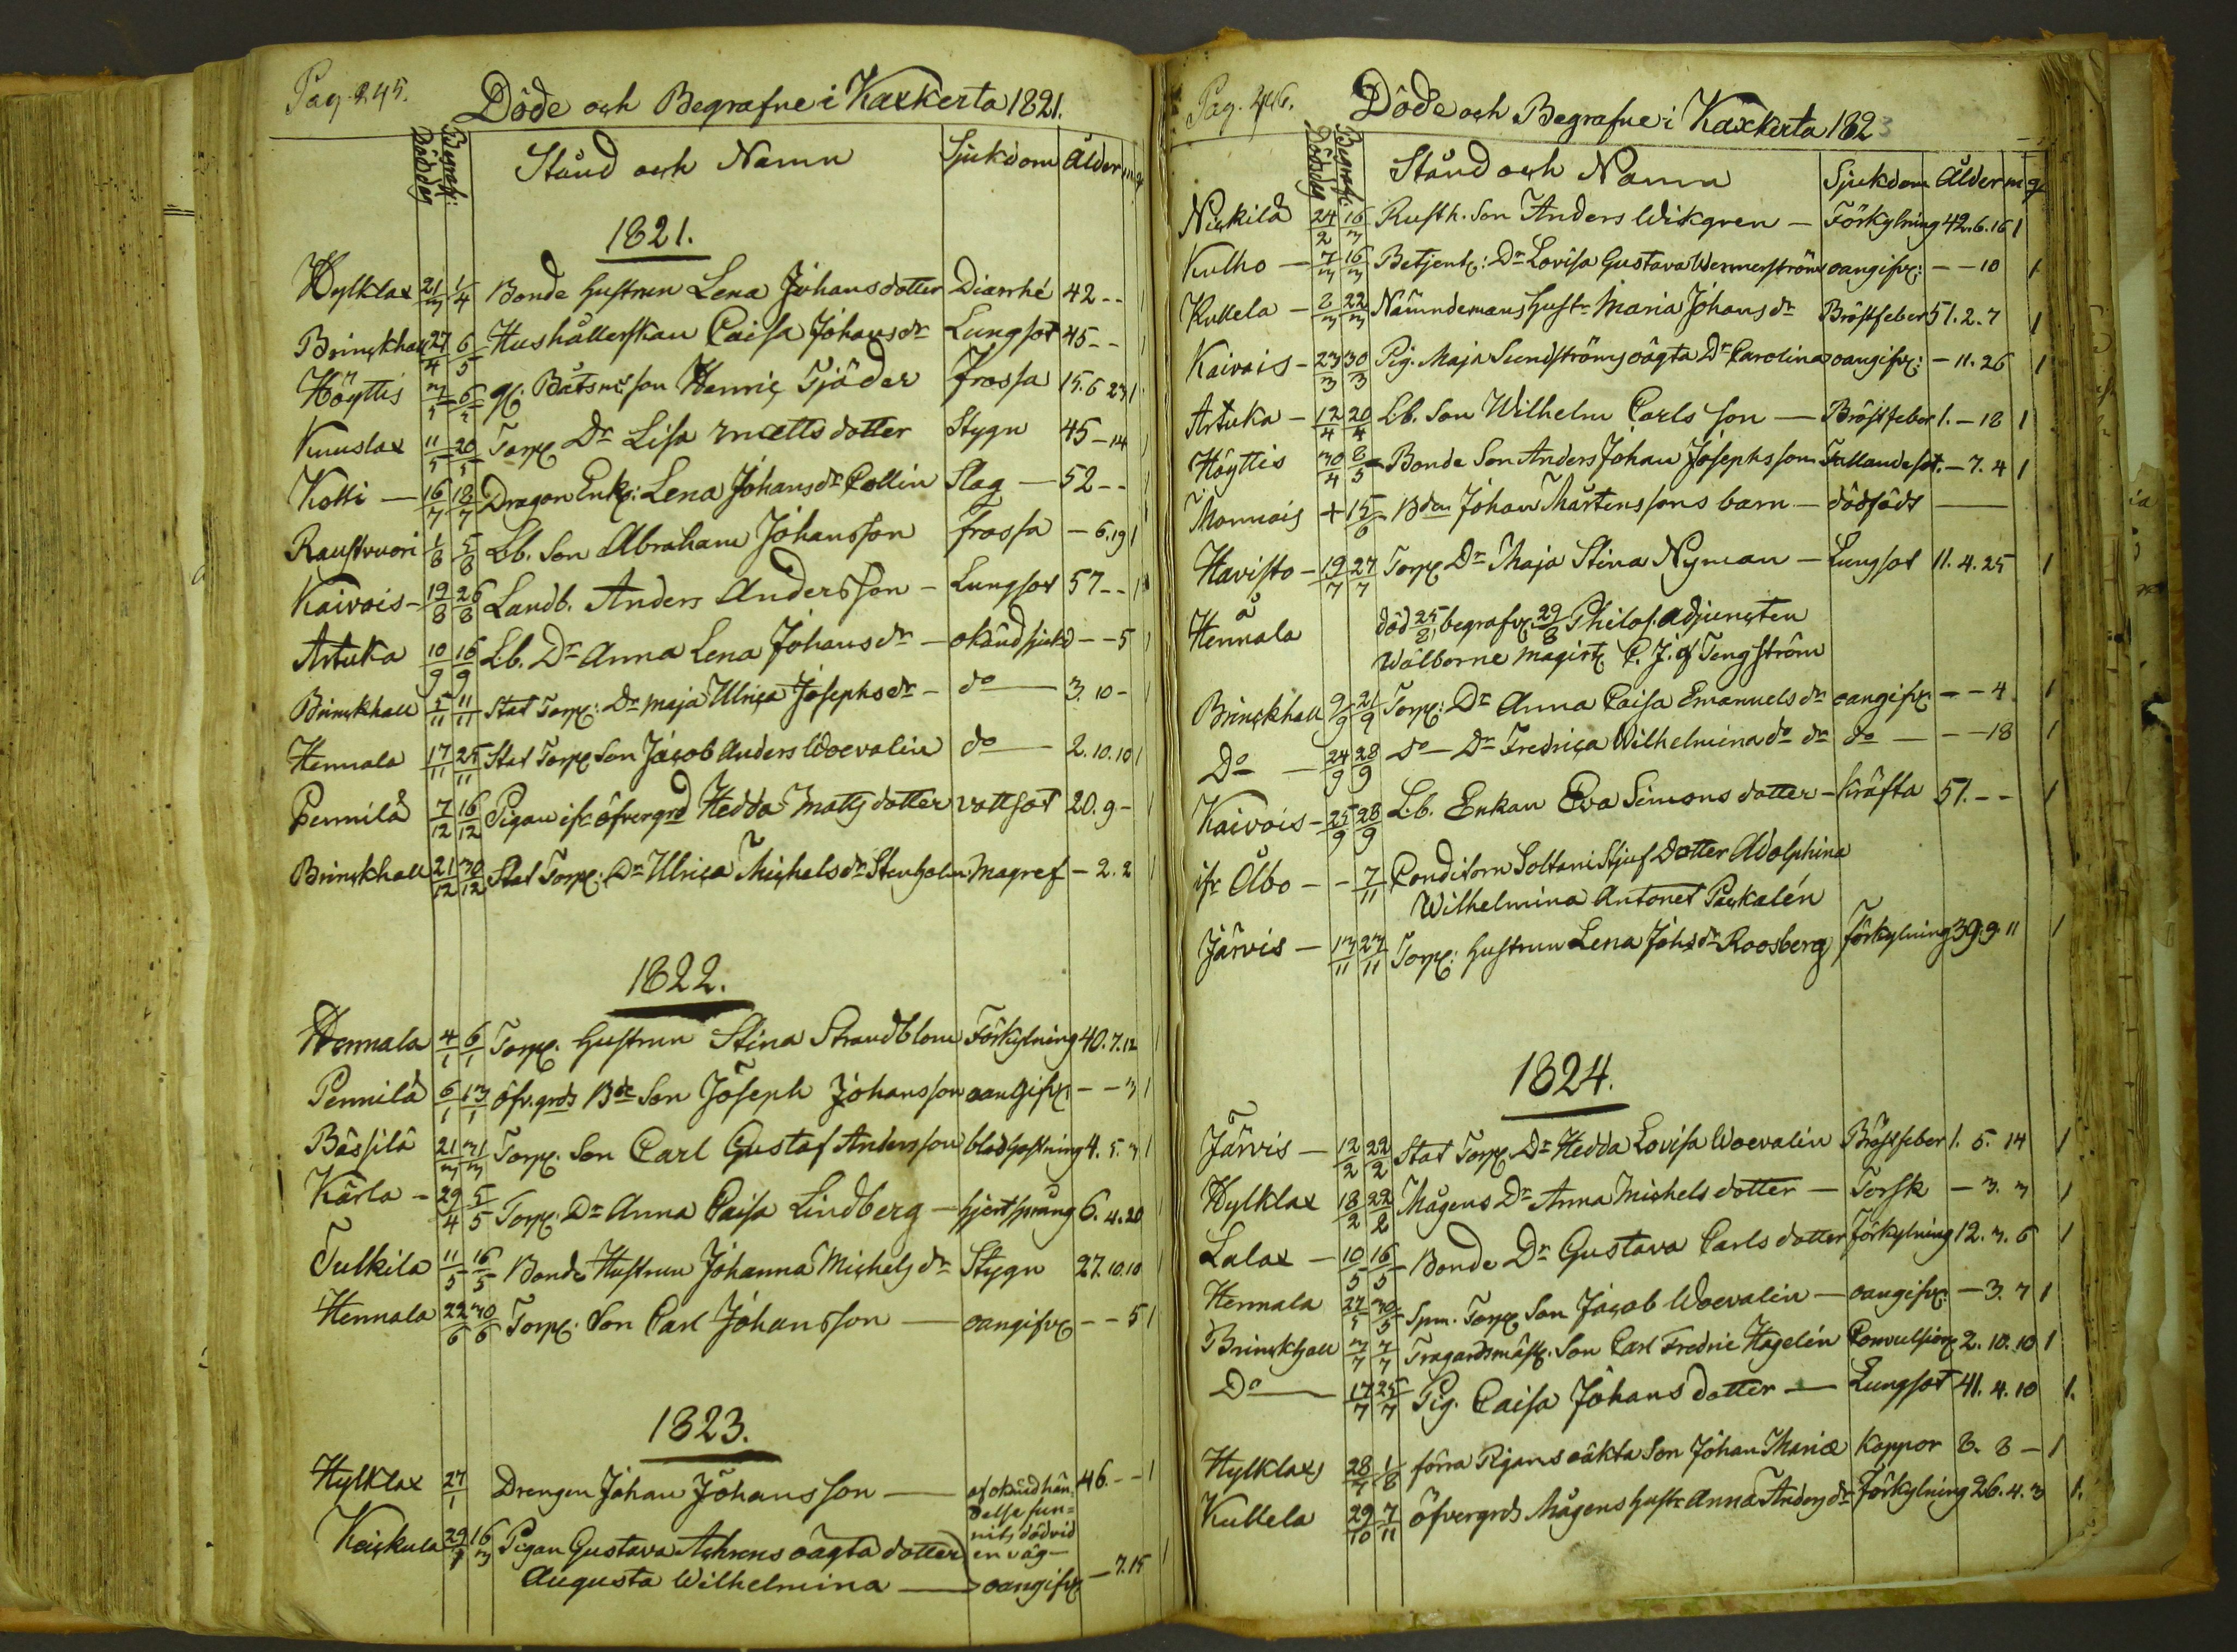 Pag. 245.
Döde och Begrafne i Kaxkerta 1821.
Dödsdag Begrafn: Stånd och Namn Sjukdom Ålder m q
1821.
Hylklax 21/3 1/4 Bonde hustrun Lena Johansdotter Diarrhé 42 - -
Brinckhall 27/4 6/5 Hushållerskan Caisa Johansdr Lungsot 45 - -
Höyttis 3/5 6/5 gl. Båtsms son Henric Tjäder frossa 15. 6 23 1
Knuslax 11/5 20/5 Torp Dr Lisa Mattsdotter Stygn 45 - 14 1
Kotti — 16/7 18/7 Dragon Enk: Lena Johansdr Collin Slag — 52 - - 1
Raustvuori 1/8 5/8 Lb. Son Abraham Johansson frossa - 6. 19 1
Kaivois - 19/8 26/8 Landb. Anders Andersson - Lungsot 57 - - 1
Artuka 10/9 16/9 Lb. Dr Anna Lena Johansdr - okändsjukd - - 5 1
Brinckhall 5/11 11/11 Stat Torp: Dr Maja Ulrica Josephsdr - do — 3. 10 - 1
Hennala 17/11 25/11 Stat Torp Son Jacob Anders Woevalin do — 2. 10. 10 1
Pennilä 7/12 16/12 Pigan ifr öfvergrd Hedda Mattsdotter vattsot 20. 9 - 1
Brinckhall 21/12 30/12 Stat Torp: Dr Ulrica Michelsdr Stenholm Magref - 2. 2 1
1822.
Hennala 4/1 6/1 Torp. hustrun Stina Strandblom Förkylning 40. 7. 12 1
Pennilä 6/1 13/1 öfv. grds Bde Son Joseph Johansson oangifv - - 3 1
Bässilä 21/3 31/3 Torp. Son Carl Gustaf Andersson blodhostning 4. 5. 3 1
Kärla - 29/4 5/5 Torp: Dr Anna Caisa Lindberg - hjertsprång 6. 4. 20 1
Tulkila 11/5 16/5 Bonde Hustrun Johanna Michelsdr Stygn 27. 10. 10 1
Hennala 22/6 30/6 Torp: Son Carl Johansson — oangifv - - 5 1
1823.
Hylklax 27/1 Drengen Johan Johansson — af okändhän= 46. - - 1
delse fun=
nits död vid
Kaickula 16/3 Pigan Gustava Achrens oägta dotter en väg -
Augusta Wilhelmina — oangifv - 7. 15 1
Pag. 246.
Döde och Begrafne i Kaxkerta 1823
Dödsdag Begrafn: Stånd och Namn Sjukdom Ålder m q
Nickilä 24/2 16/3 Rusth. Son Anders Wikgren - Förkylning 42. 6. 16 1
Kulho — 7/3 16/3 Betjent: Dr Lovisa Gustava Wennerström oangifv: - - 10 1
Kullela - 8/3 22/3 Nämndemans hustr Maria Johansdr Bröstfeber 51. 2. 7 1
Kaivois - 23/3 30/3 Pig. Maja Sundströms oägta Dr Carolina oangifv: - 11. 26 1
Artuka - 12/4 20/4 Lb. Son Wilhelm Carlsson — Bröstfeber 1. - 18 1
Höyttis 30/4 8/5 Bonde Son Anders Johan Josephsson Fallandesot. - 7. 4 1
Monnois + 15/6 Bden Johan Mårtenssons barn - dödfödt —
Havisto - 19/7 27/7 Torp Dr Maja Stina Nyman - Lungsot 11. 4. 25 1
å
Hennala död 25/8, begrafv. 29/8 Philos. Adjuncten
Wälborne Magist C. J. af Tengström
Brinckhall 9/9 21/9 Torp: Dr Anna Caisa Emanuelsdr oangifv - - 4 1
Do — 24/9 28/9 do - Dr Fredrica Wilhelmina do dr do — - - 18 1
Kaivois - 25/9 28/9 Lb. Enkan Eva Simonsdotter - Kräfta 51. - - 1
ifr Åbo - - 7/11 Conditorn Soltani Stjufdotter Adolphina
Wilhelmina Antonet Packalén
Järvis — 13/11 23/11 Torp: hustrun Lena Johsdr Roosberg förkylning 39. 9. 11 1
1824.
Järvis — 12/2 22/2 Stat Torp Dr Hedda Lovisa Woevalin Bröstfeber 1. 5. 14 1
Hylklax 18/2 22/2 Mågens Dr Anna Michelsdotter — Torsk - 3. 3 1
Lalax — 10/5 16/5 Bonde Dr Gustava Carlsdotter förkylning 12. 3. 6 1
Hennala 27/5 30/5 Spm. Torp Son Jacob Woevalin — oangifv: - 3. 7 1
Brinckhall 3/7 7/7 Tragardsmäst. Son Carl Fredric Hagelén Convulsion 2. 10. 10 1
Do — 17/7 25/7 Pig. Caisa Johansdotter — Lungsot 41. 4. 10 1.
Hylklax 28/7 1/8 förra Pigans oäkta Son Johan Mariæ Koppor 3. 8 - 1
Kullela 29/10 7/11 öfvergrds Mågens hustr Anna Andersdr Förkylning 26. 4. 3 1.